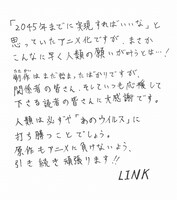 「2045年までに実現すればいいな」と
思っていたアニメ化ですが、まさか
こんなに早く人類の願いが叶うとは…!
制作はまだ始まったばかりですが、
関係者の皆さん、そしていつも応援して
下さる読者の皆さんに大感謝です。
人類は必ずや「あのウイルス」に
打ち勝つことでしょう。
原作もアニメに負けないよう、
引き続き頑張ります!!
LINK